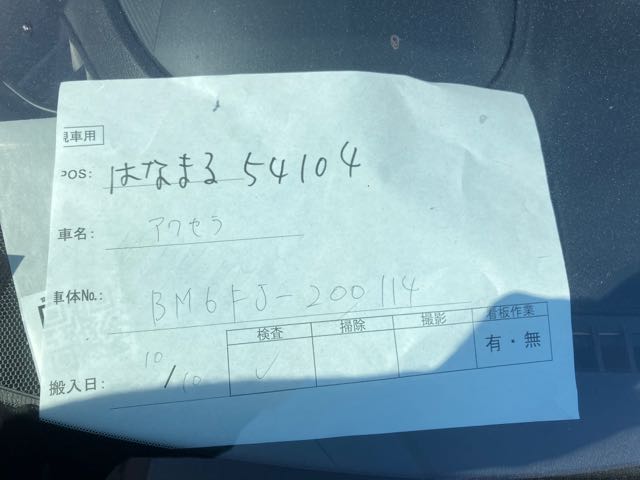 現車用
POS: はなまる 54104
車名: アクセラ
車体No.: BM6FJ-200114
検査 掃除 撮影 看板作業
搬入日: 10/10 ✓ 有・無